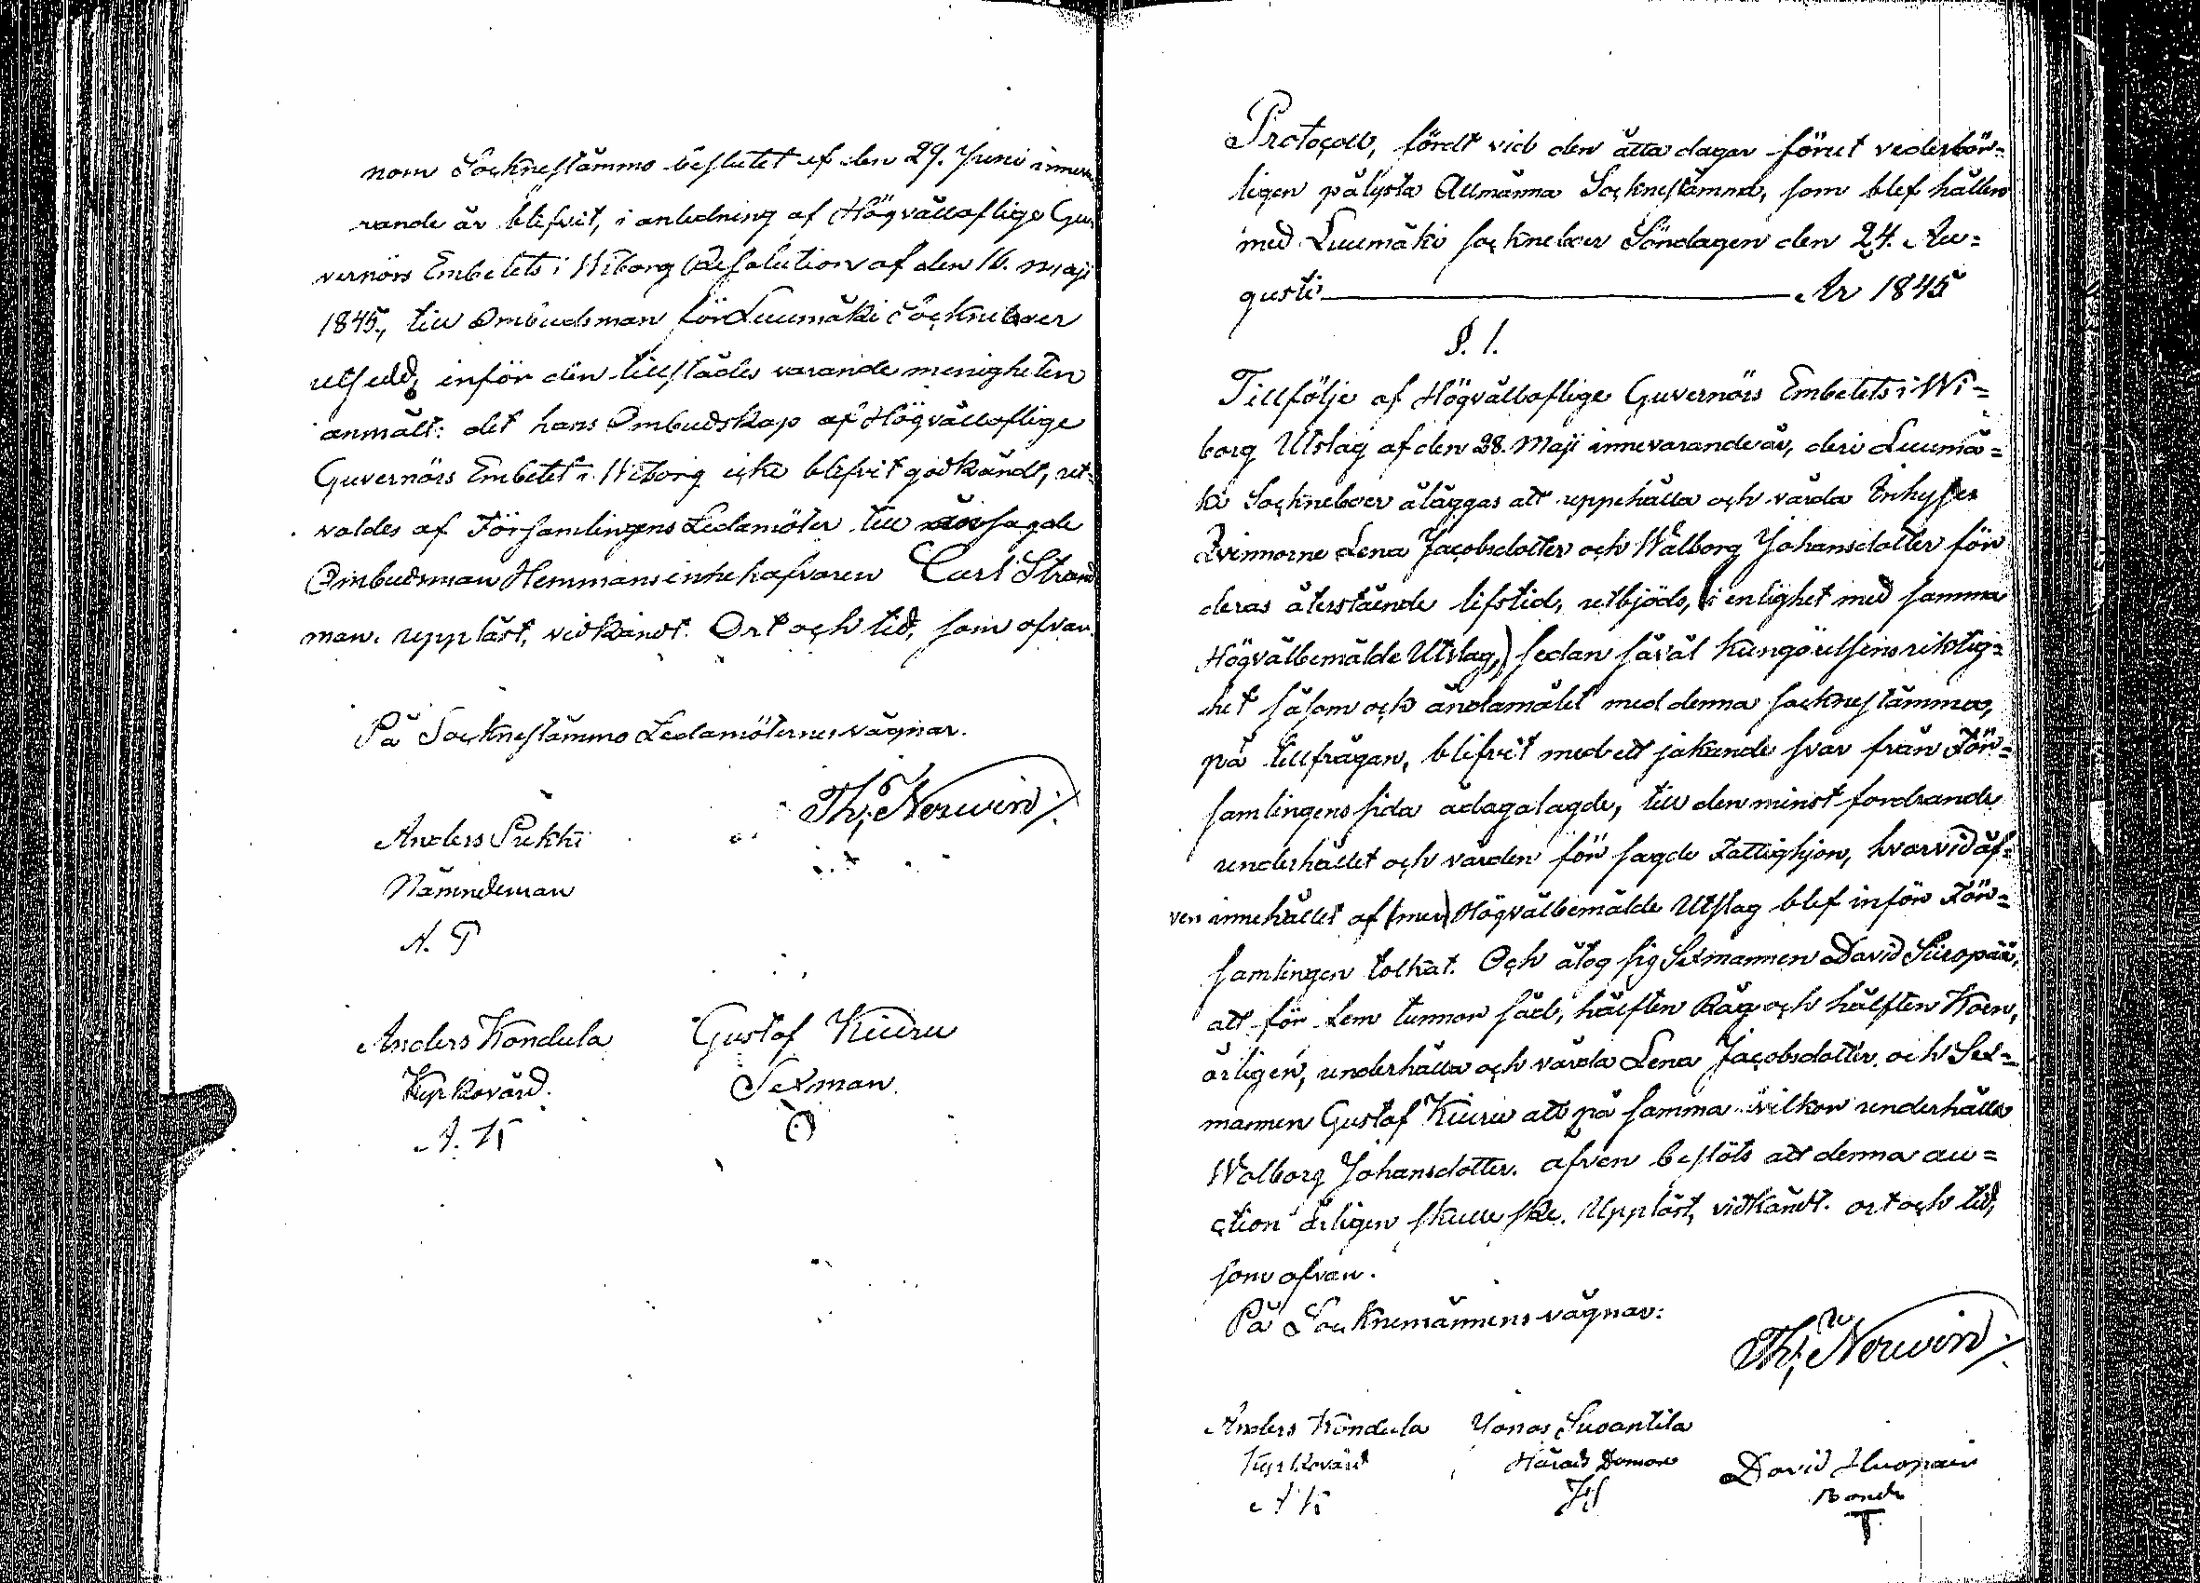 nom Sockneståmmo beslutet af den 29. Juni inneva
rande år blifvit, i anledning af Högvälloflige Gu
vernörs Embetets i Wiborg Resolution af den 16. Maji
1845, till Ombudsman för Luumäki Sockneboer
utsedd, inför den tillstädes varande menigheten
anmält: det hans Ombudskap af Högvälloflige
Guvernörs Embetet i Wiborg icke blifvit godkändt, ut-
valdes af Församlingens Ledamöter till sagde
Ombudsman Hemmansinnehafvaren Carl Strand
man. uppläst, vidkändt. Ort och tid, som ofvan.
På Socknestämmo Ledamöternes vägnar.
Th; Nerwin
Anders Pukki
Nämndeman
A. P
Anders Kondula Gustaf Kiuru
Kyrkovärd. Sexman.
A. K
Protocoll, fördt vid den åtta dagar förut vederbör=
ligen pålysta Allmänna Socknestämma, som blef hållen
med Luumäki sockneboer Söndagen den 24. Au=
gusti År 1845
§. 1.
Tillfölje af Högvälloflige Guvernörs Embetets i Wi=
borg Utslag af den 28. Maji innevarande år, deri Luumä=
ki Sockneboer åläggas att uppehålla och vårda Inhyses
Qvinnorne Lena Jacobsdotter och Walborg Johansdotter för
deras återstående lifstid, utbjöds, (i enlighet med samma
Högvälbemälde Utslag,) sedan såväl kungörelsens riktig=
het såsom och ändamålet med denna socknestämma,
på tillfrågan, blifvit med ett jakande svar från För=
samlingens sida ådagalagde, till den minst fordrande
underhållet och vården för sagde Fattighjon, hvarvid äf=
ven innehållet af (mer) Högvälbemälde Utslag blef inför För=
samlingen tolkat. Och åtog sig Sexmannen David
att för fem tunnor säd, hälften Råg och hälften Korn,
årligen, underhålla och vårda Lena Jacobsdotter, och Sex=
mannen Gustaf Kiuru att på samma vilkor underhålla
Walborg Johansdotter. äfven beslöts att denna au=
ction årligen skulle ske. Uppläst, vidkändt. ort och tid,
som ofvan.
På Socknemännens vägnar:
Th; Nerwin
Anders Kondula Jonas Suoantila
Kyrkovärd Härads Domare David
A K JS Bonde
T